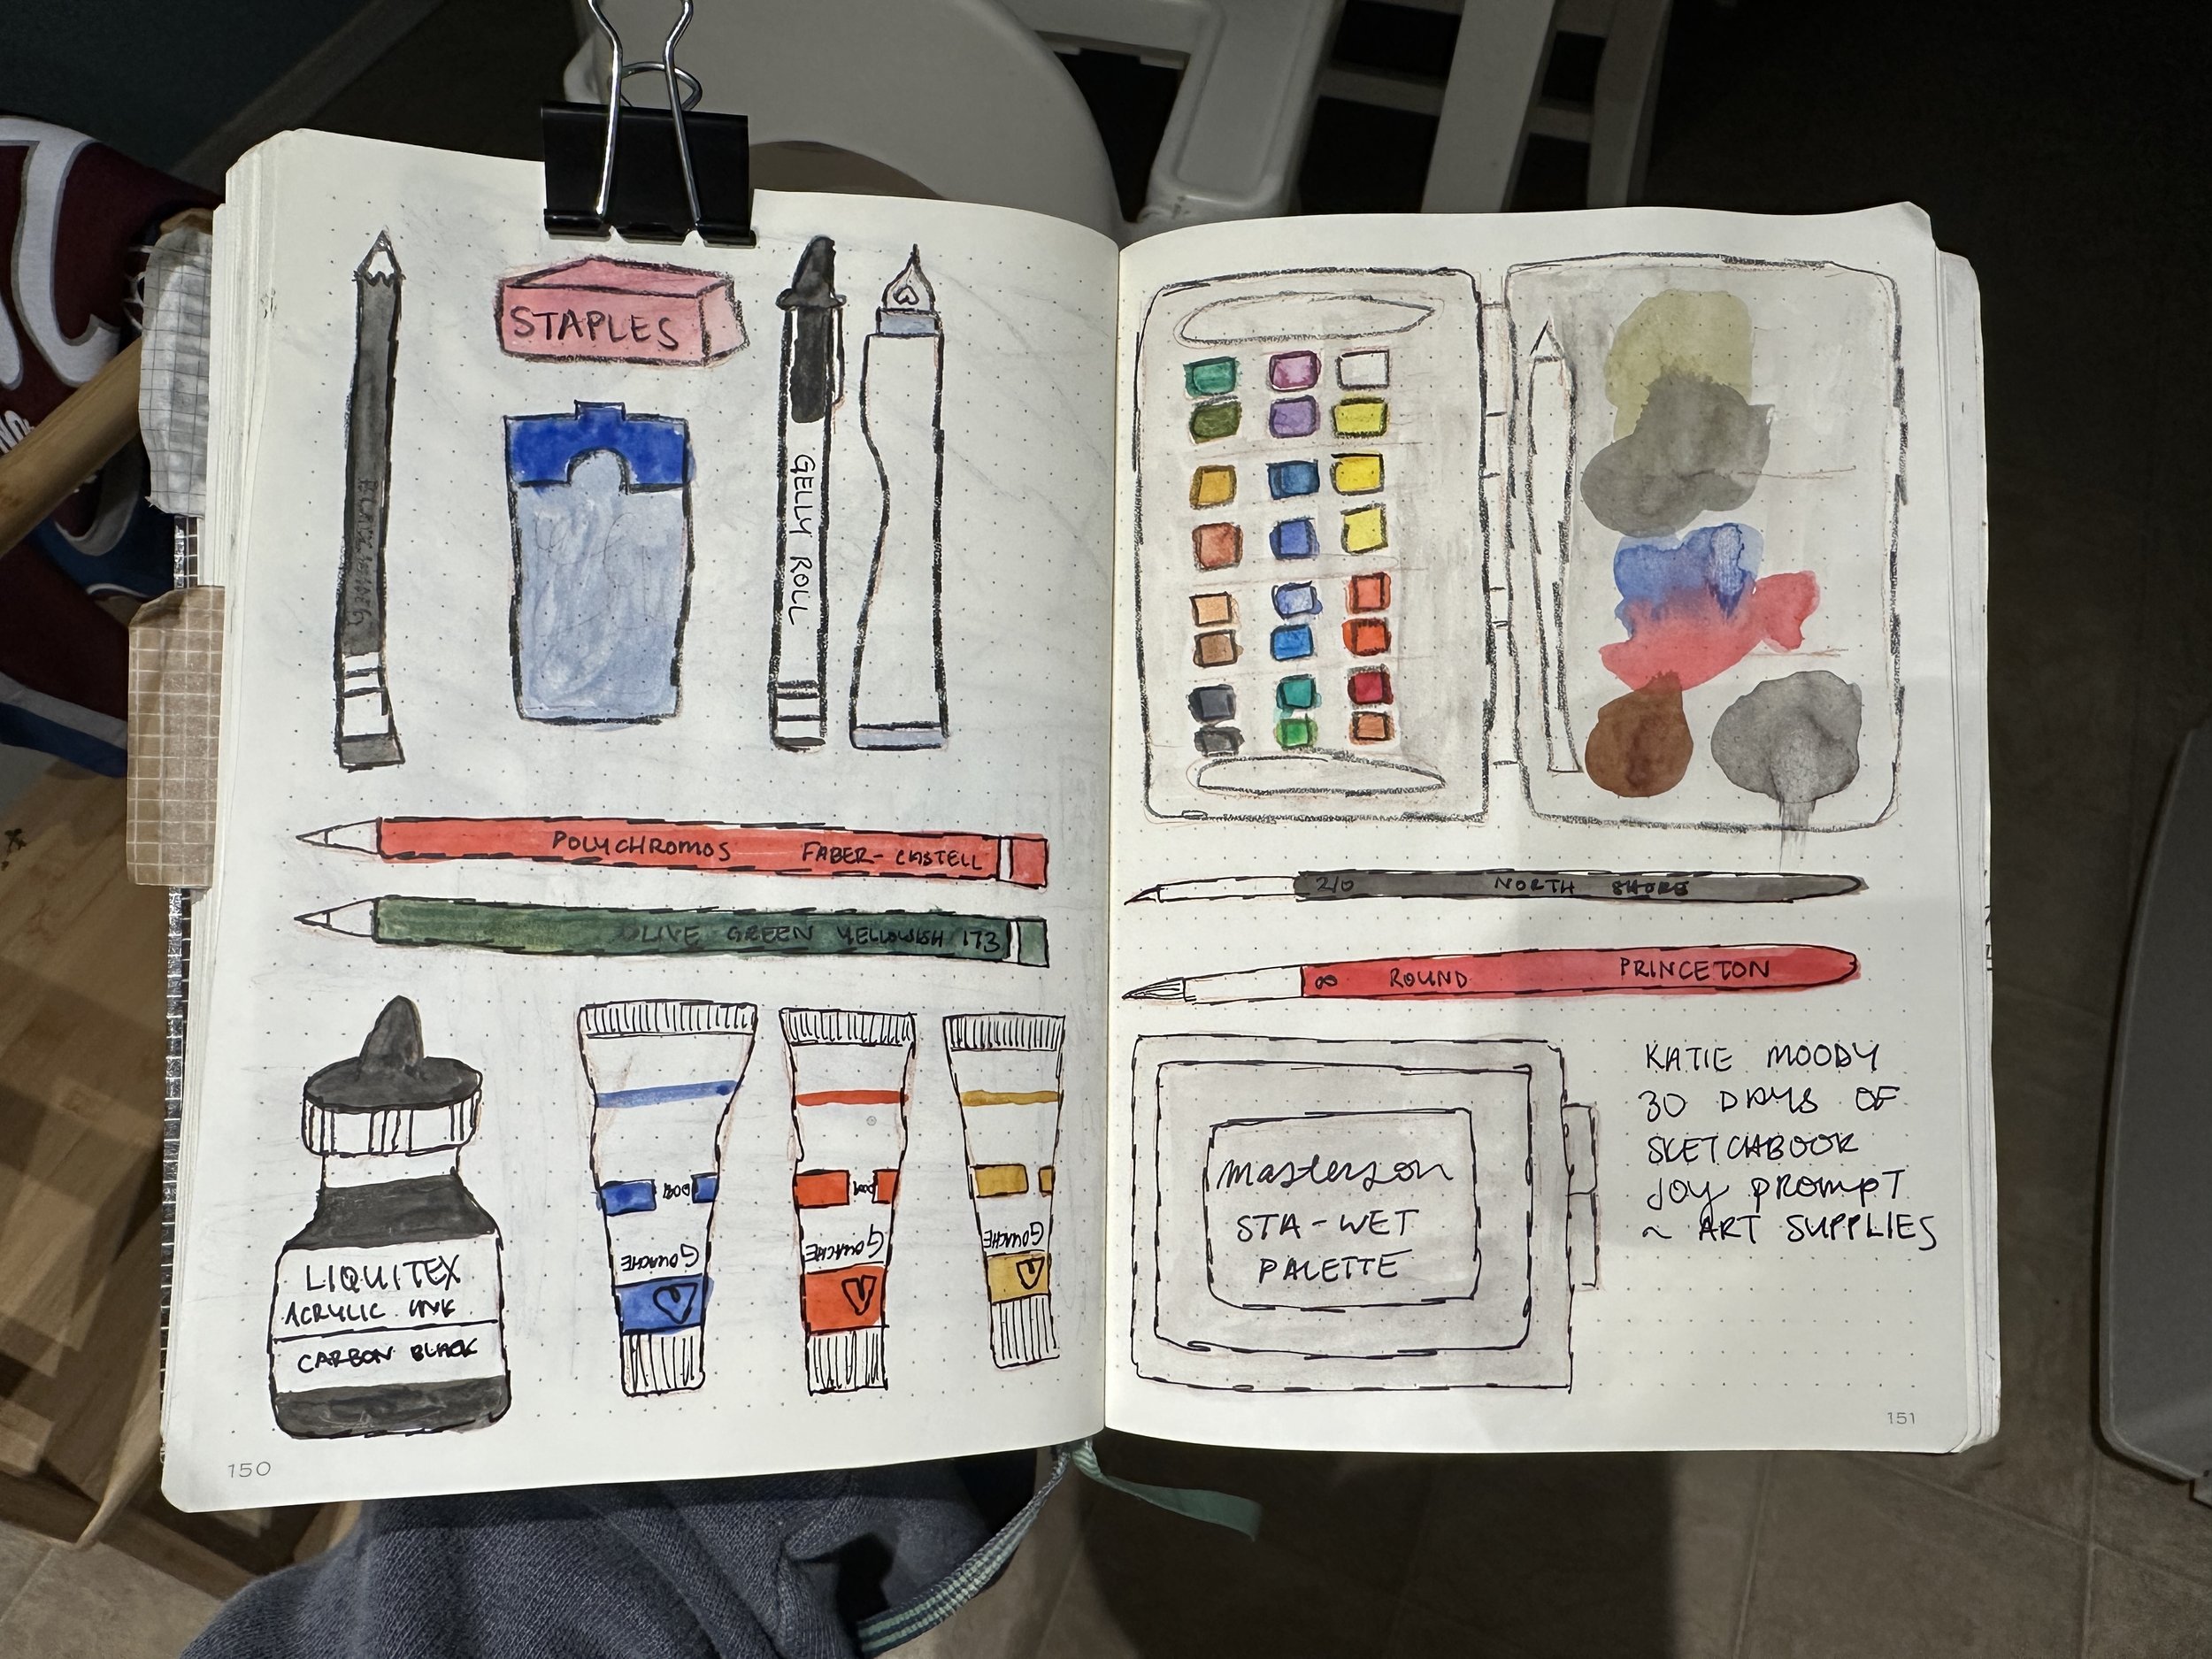 STAPLES
BLACKWING
GELLY ROLL
POLYCHROMOS FABER-CASTELL
OLIVE GREEN YELLOWISH 173
LIQUITEX
ACRYLIC INK
CARBON BLACK
GOUACHE
GOUACHE
GOUACHE
150
2/0 NORTH SHORE
8 ROUND PRINCETON
masterson
STA-WET
PALETTE
KATIE MOODY
30 DAYS OF
SKETCHBOOK
JOY PROMPT
~ ART SUPPLIES
151